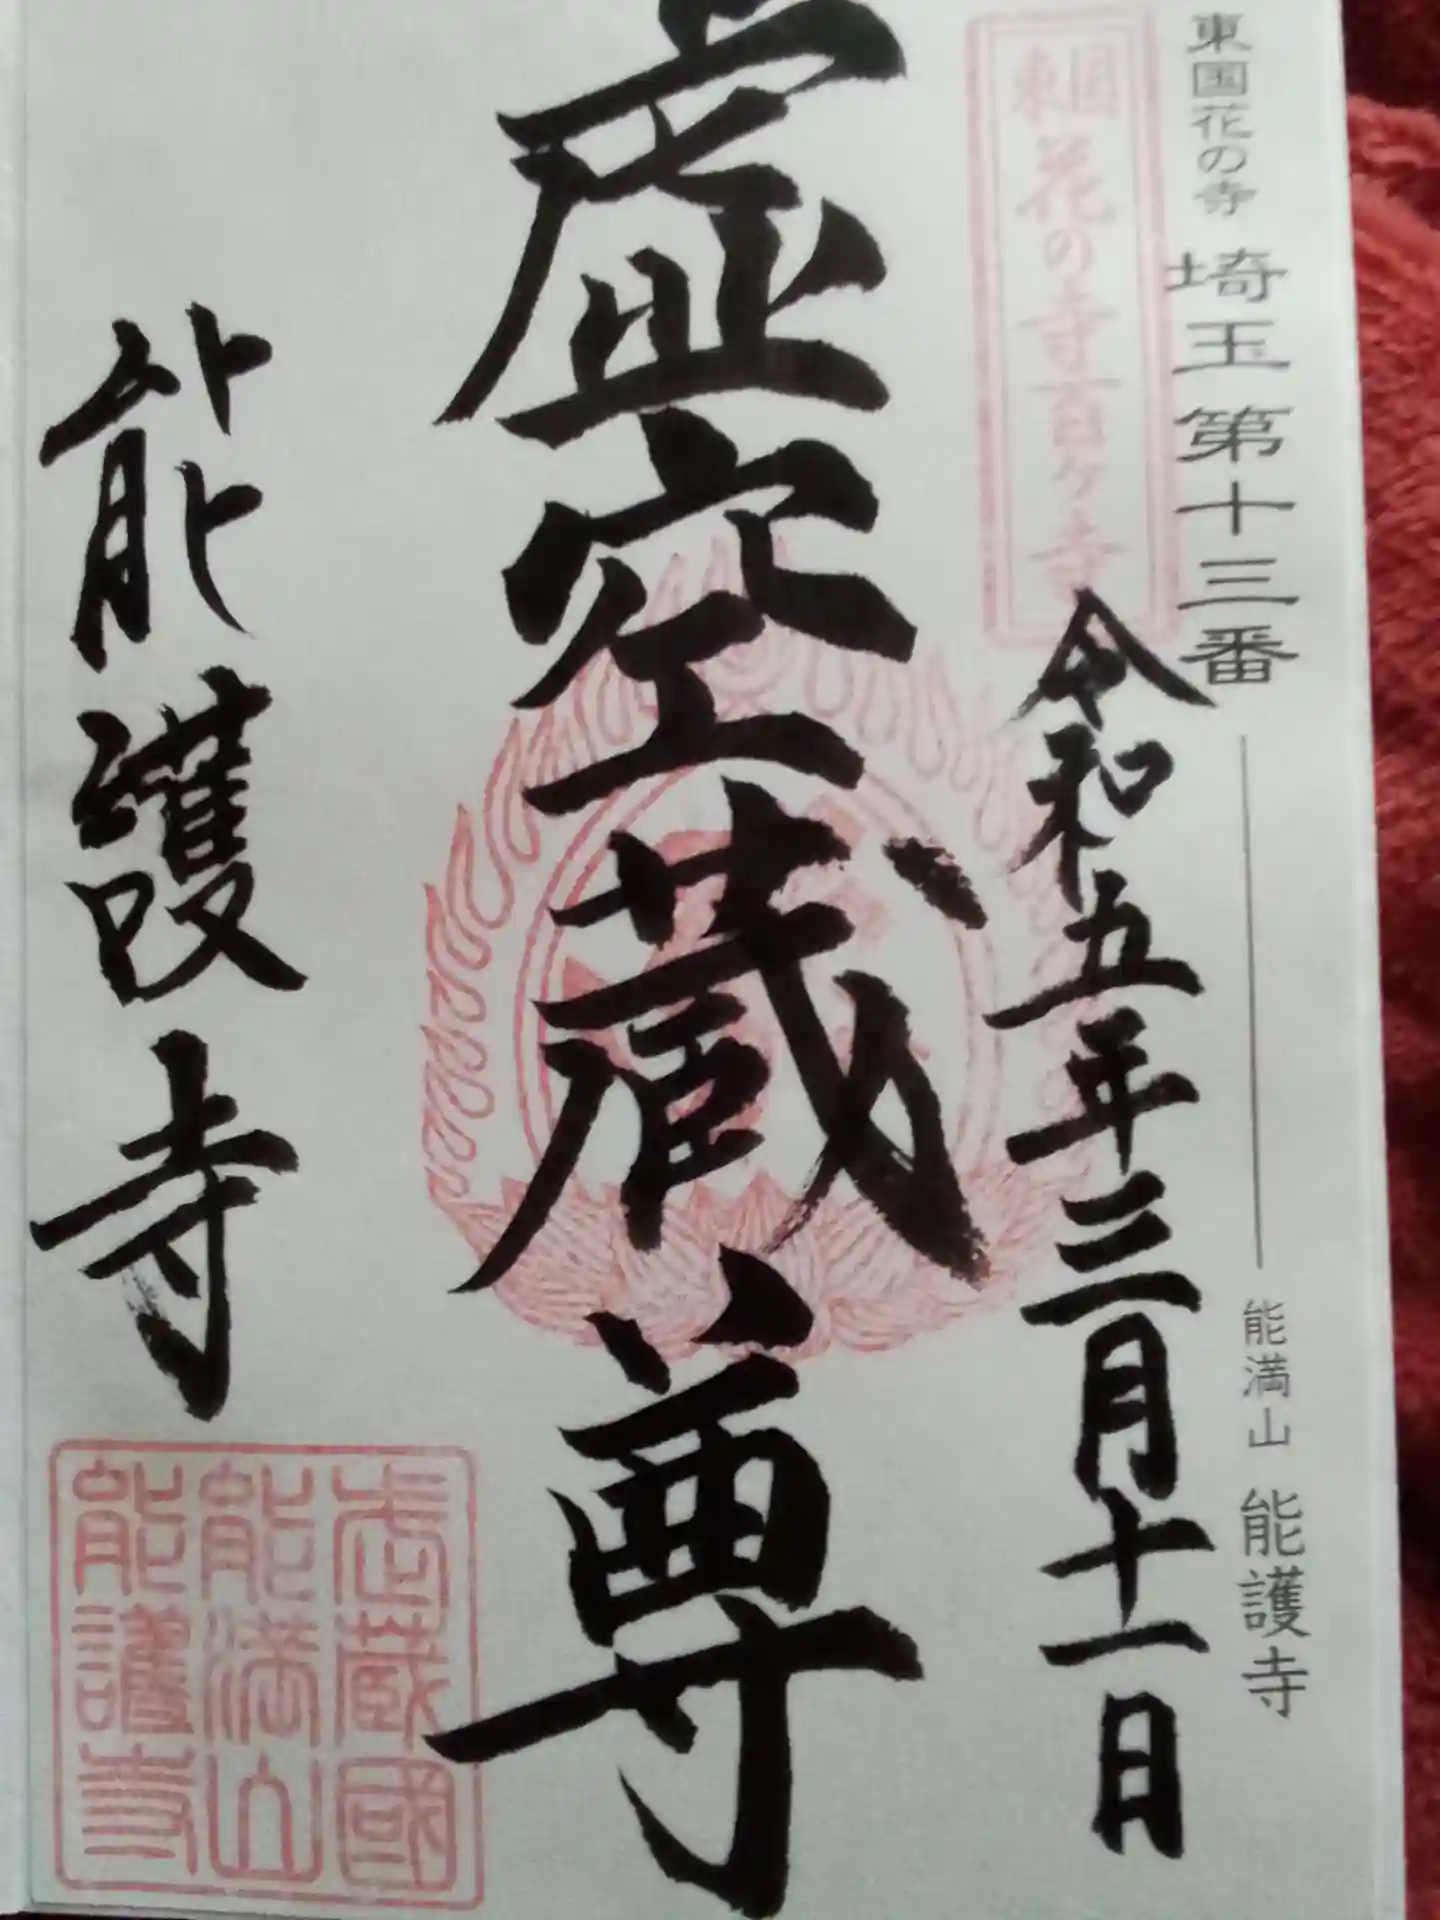 東国花の寺 埼玉第十三番
能満山 能護寺
東国花の寺百ヶ寺
令和五年三月十一日
虚空蔵尊
能護寺
武蔵國
能満山
能護寺